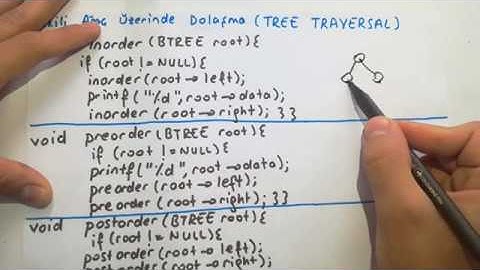 Ağaç Üzerinde Dolaşma (TREE TRAVERSAL)
inorder (BTREE root){
if (root != NULL){
inorder(root→left);
printf("%d",root→data);
inorder (root→right); }}
void preorder (BTREE root){
if (root != NULL){
printf("%d", root→data);
preorder (root→left);
preorder (root→right); }}
void postorder (BTREE root){
if (root != NULL){
postorder (root→left);
postorder (root→right);